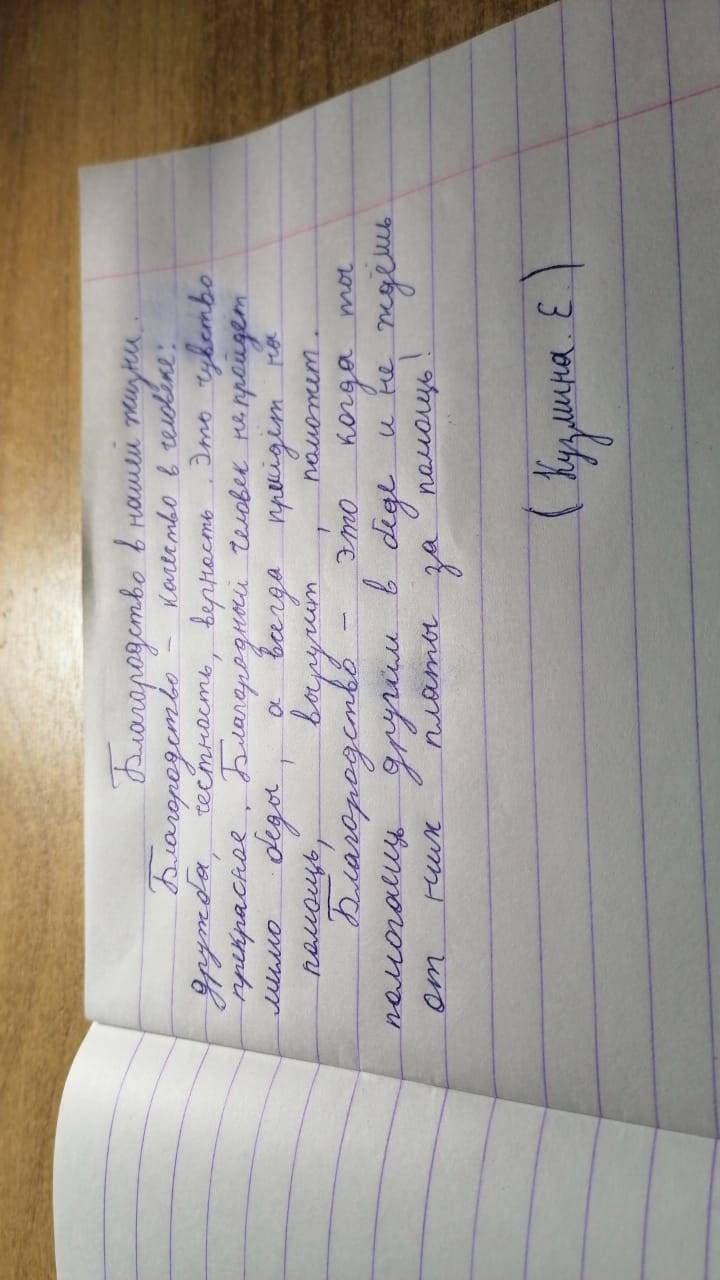 Благородство в нашей жизни.
Благородство – качество в человеке:
дружба, честность, верность. Это чувство
прекрасное. Благородный человек не пройдет
мимо беды, а всегда прийдёт на
помощь, выручит, поможет.
Благородство – это когда ты
помогаещ другим в беде и не ждёшь
от них платы за помощь!
(Кузмина. Е.)